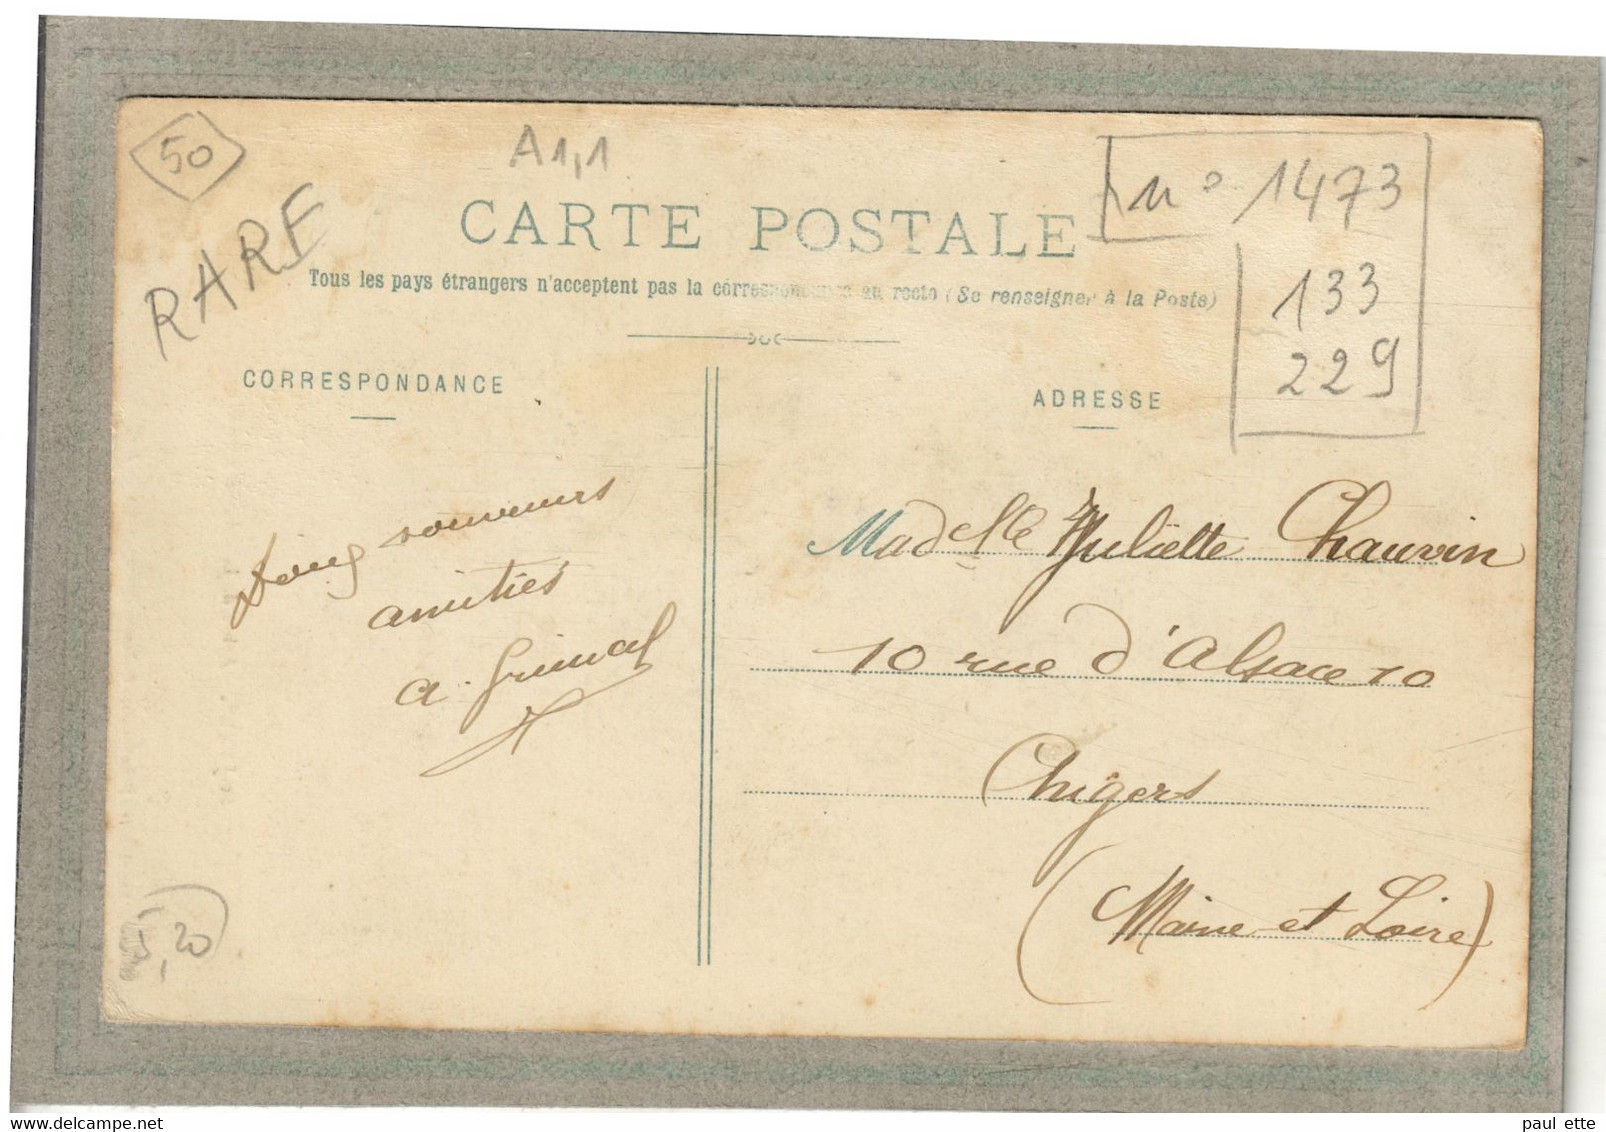 50
A1,1
n° 1473
RARE
CARTE POSTALE
133
Tous les pays étrangers n'acceptent pas la correspondance au recto (Se renseigner à la Poste)
229
CORRESPONDANCE
ADRESSE
souvenirs
amitiés
a. Grimal
Madelle Juliette Chauvin
10 rue d'Alsace 10
Angers
(Maine et Loire)
5,20
paul ette